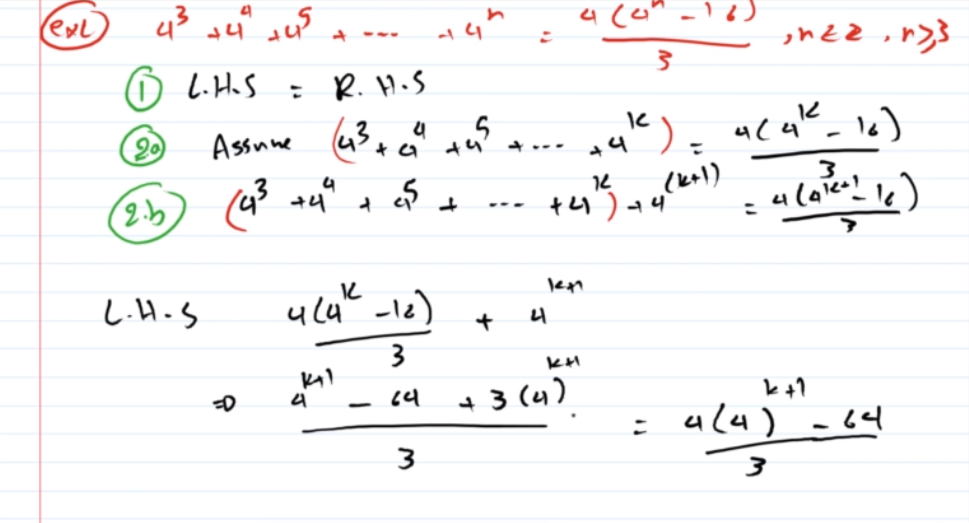 ex1 4³ + 4⁴ + 4⁵ + ... + 4ⁿ = 4(4ⁿ - 16)/3 , n ∈ Z , n ≥ 3
① L.H.S = R.H.S
2a Assume (4³ + 4⁴ + 4⁵ + ... + 4ᵏ) = 4(4ᵏ - 16)/3
2.b (4³ + 4⁴ + 4⁵ + ... + 4ᵏ) + 4⁽ᵏ⁺¹⁾ = 4(4ᵏ⁺¹ - 16)/3
L.H.S 4(4ᵏ - 16)/3 + 4ᵏ⁺¹
⇒ (4ᵏ⁺¹ - 64 + 3(4)ᵏ⁺¹)/3 = (4(4)ᵏ⁺¹ - 64)/3